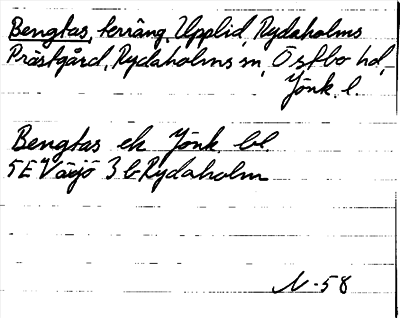 Bengtas, terräng, Upplid, Rydaholms
Prästgård, Rydaholms sn, Östbo hd,
Jönk. l.
Bengtas ek Jönk. bl.
5E Växjö 3 b Rydaholm
N-58